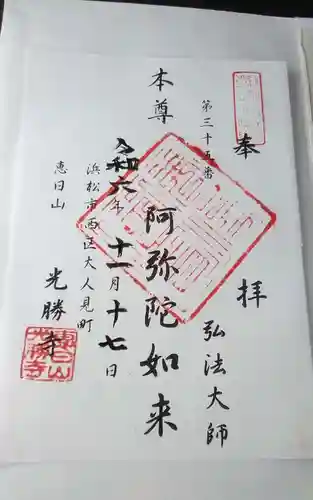 奉拝
第三十五番
弘法大師
本尊
阿弥陀如来
令和六年十一月十七日
浜松市西区大人見町
恵日山
光勝寺
恵日山光勝寺